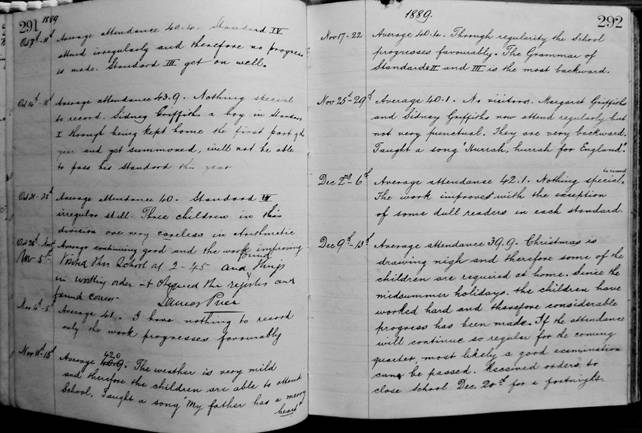 291 1889
Oct 7th-11th Average attendance 40.4. Standard IV
attend irregularly and therefore no progress
is made. Standard III get on well.
Oct 14th-18th Average attendance 43.9. Nothing special
to record. Sidney Griffiths a boy in Standard
I through being kept home the first part of the
year and get summoned, will not be able
to pass his Standard this year
Oct 21-25th Average attendance 40. Standard IV
irregular still. Three children in this
division are very careless in Arithmetic
Average continuing good and the work improving
Nov 5th Visited this School at 2-45 and found things
in working order. I Checked the register and
found correct
James Price
Nov 4th-8th Average 41. I have nothing to record
only the work progresses favourably
Nov 11th-15th Average 40.9. 42.0 The weather is very mild
and therefore the children are able to attend
School. Taught a song "My father has a merry
heart
1889. 292
Nov 17-22 Average 40.4. Through regularity the School
progresses favourably. The Grammar of
Standards II and III is the most backward.
Nov 25th-29th Average 40.1. No visitors. Margaret Griffiths
and Sidney Griffiths now attend regularly but
not very punctual. They are very backward.
Taught a song "Hurrah, hurrah for England"
Dec 2nd-6th Average attendance 42.1. Nothing special to record
The work improves with the exception
of some dull readers in each standard.
Dec 9th-13th Average attendance 39.9. Christmas is
drawing nigh and therefore some of the
children are required at home. Since the
midsummer holidays, the children have
worked hard and therefore considerable
progress has been made. If the attendance
will continue so regular for the coming
quarter, most likely a good examination
can be passed. Received orders to
close School Dec 20th for a fortnight.